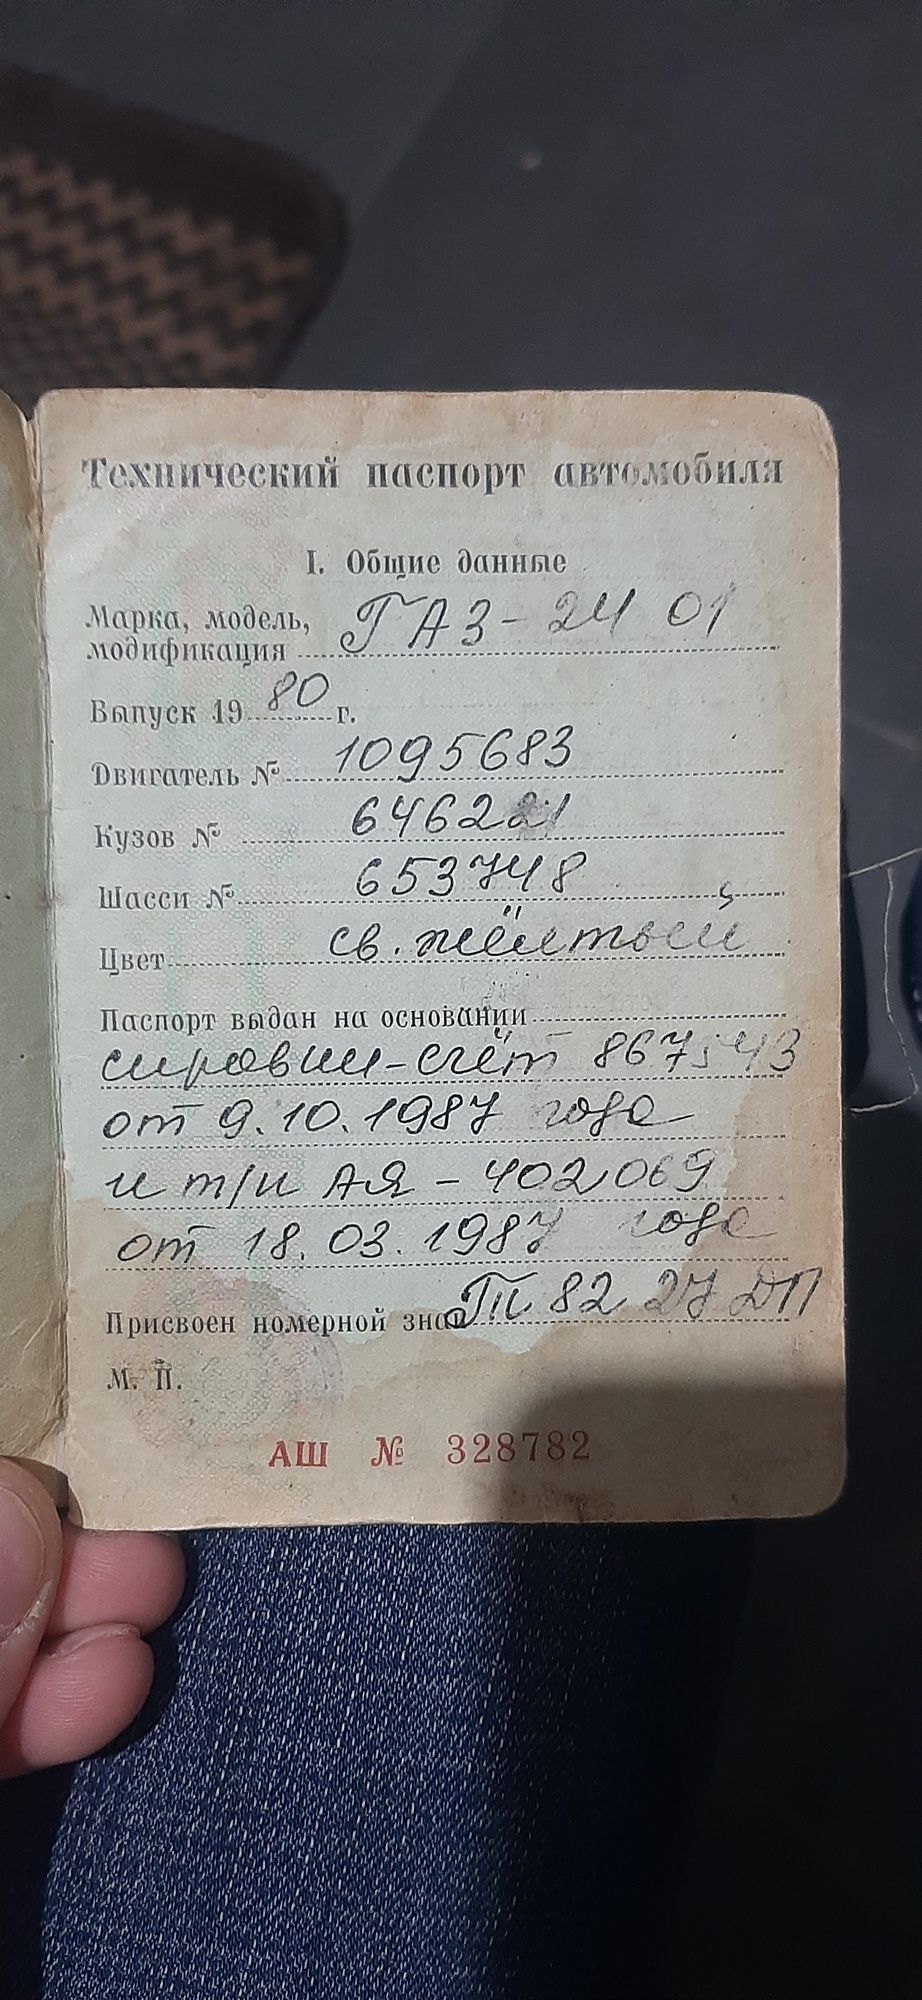 Технический паспорт автомобиля
I. Общие данные
Марка, модель, модификация ГАЗ-24 01
Выпуск 1980 г.
Двигатель № 1095683
Кузов № 646221
Шасси № 653748
Цвет св. жёлтый
Паспорт выдан на основании
счёт 867543
от 9.10.1987 года
и т/п АЯ-402069
от 18.03.1987 года
Присвоен номерной знак 82 27 ДП
М. П.
АШ № 328782